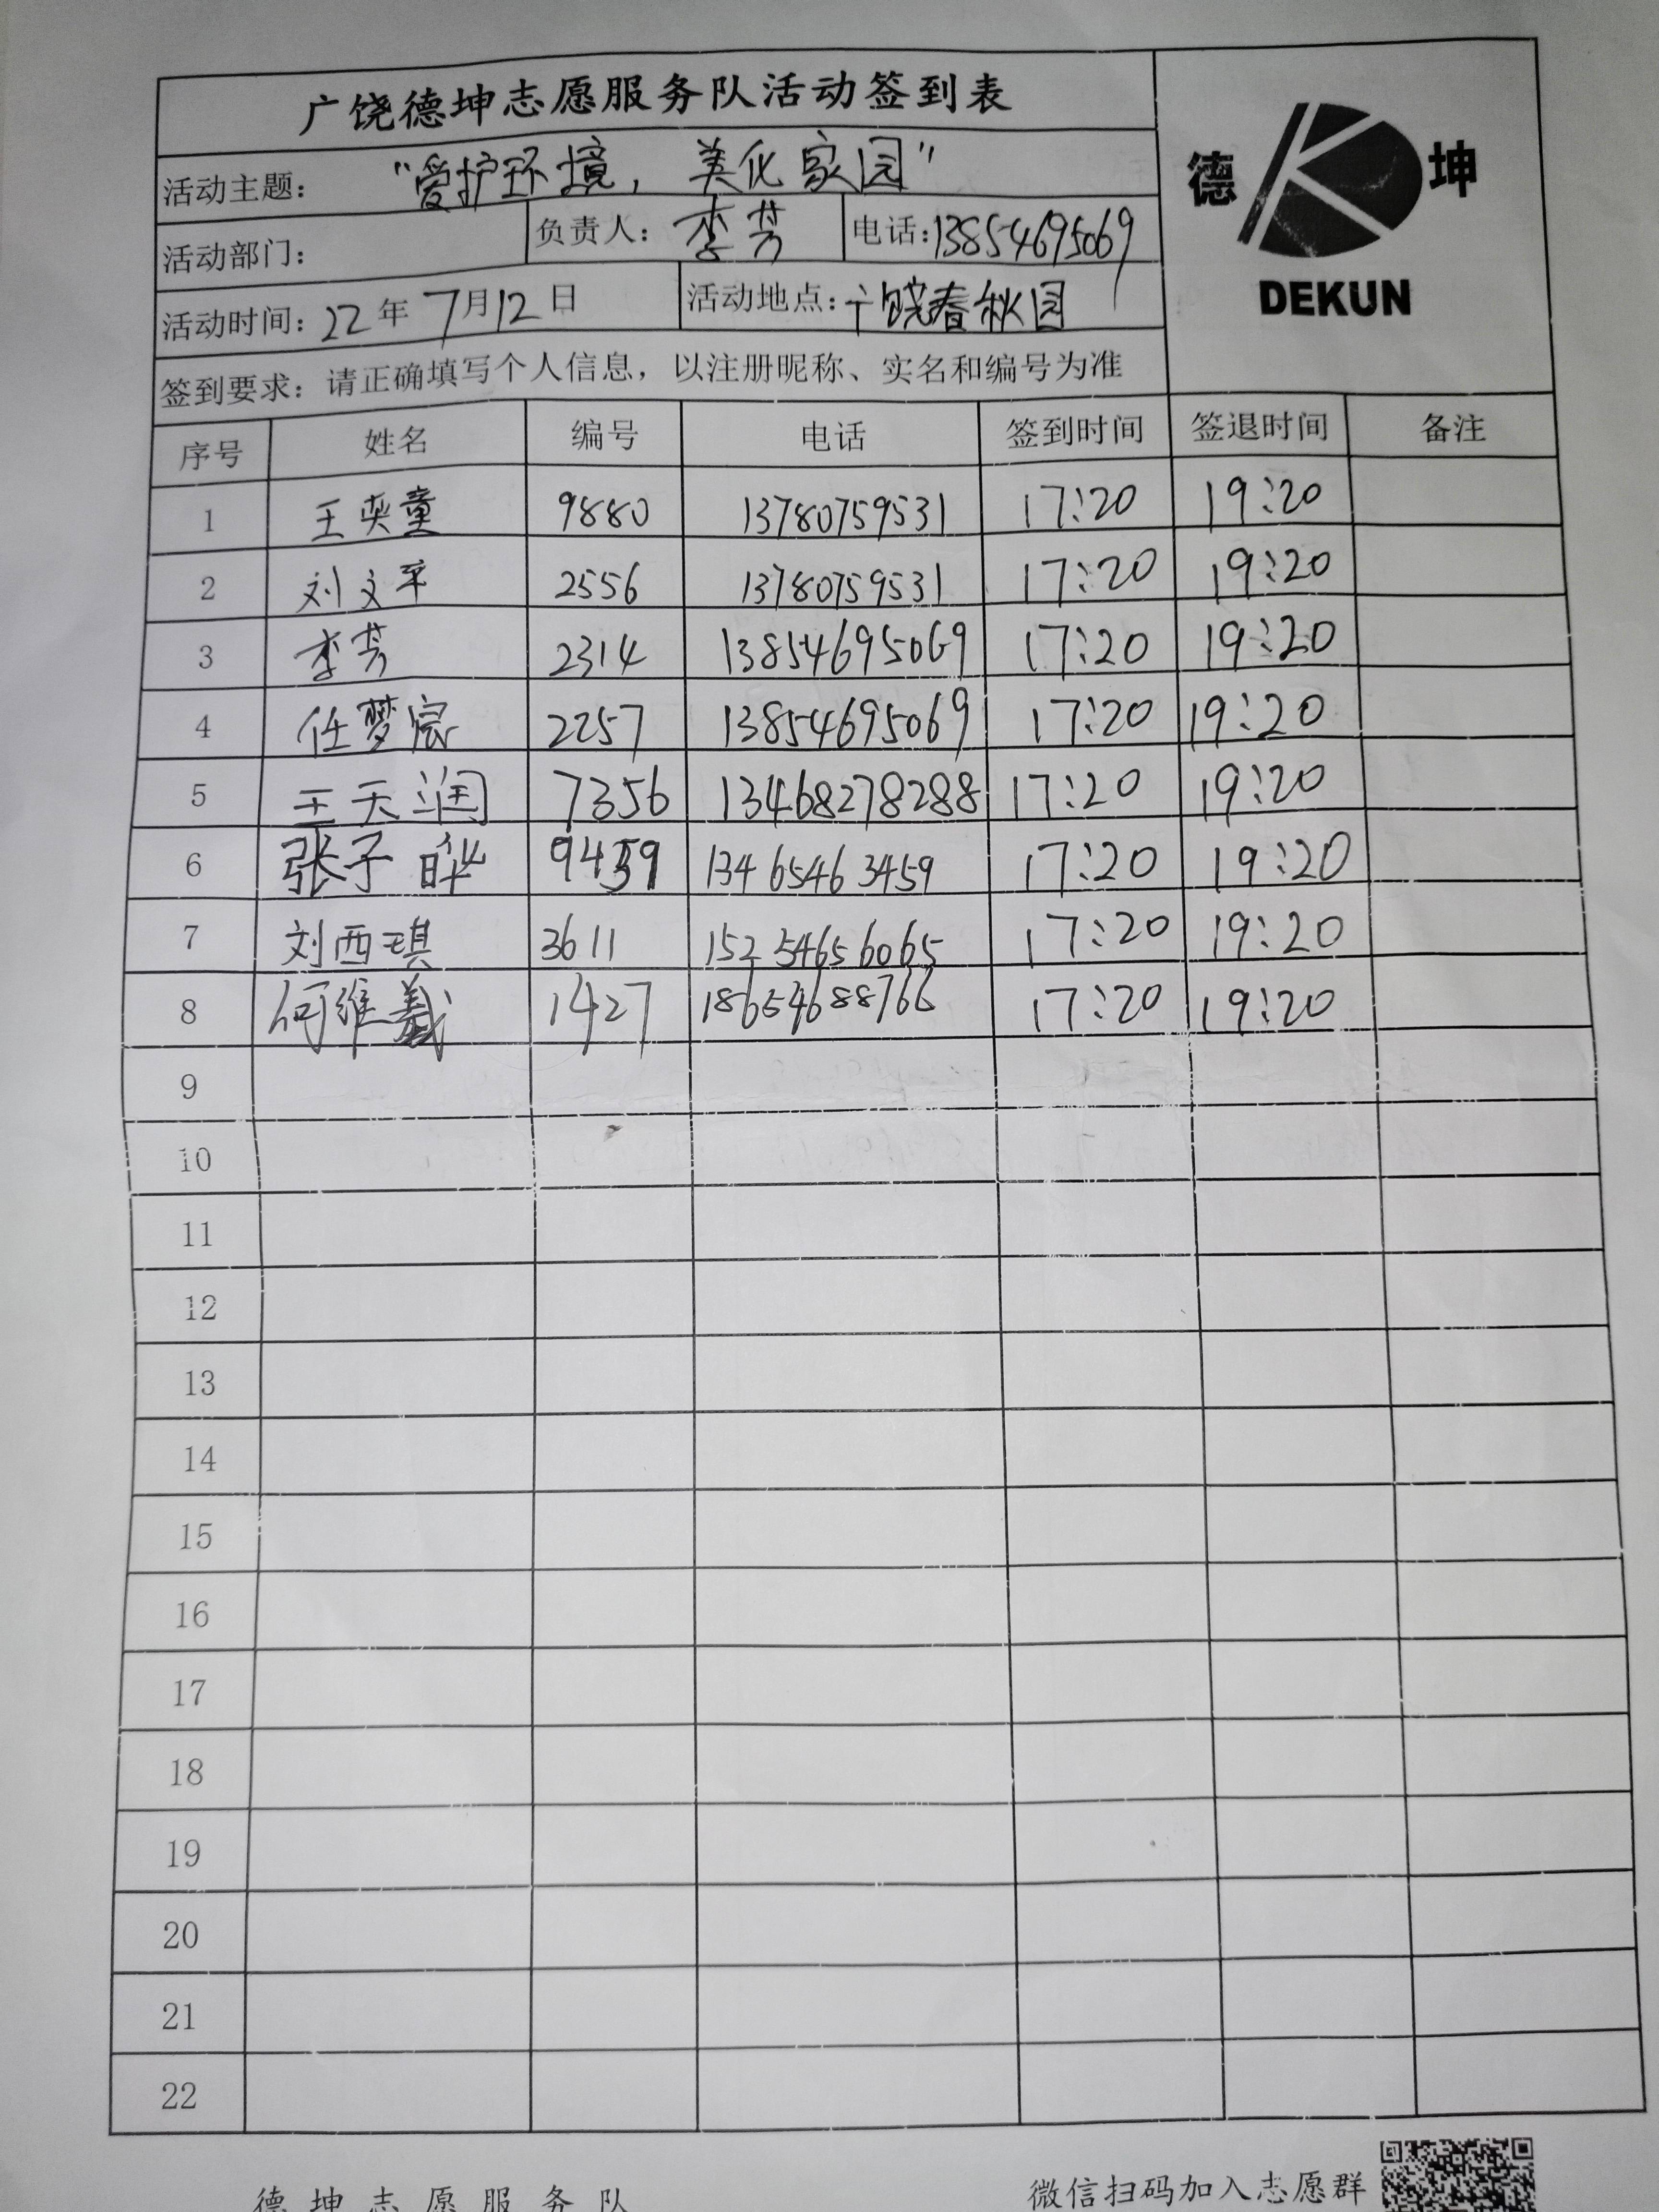 广饶德坤志愿服务队活动签到表
德 坤
DEKUN
活动主题： "爱护环境，美化家园"
活动部门： 负责人：李芳 电话：13854695069
活动时间：22年7月12日 活动地点：广饶春秋园
签到要求：请正确填写个人信息，以注册昵称、实名和编号为准
序号 姓名 编号 电话 签到时间 签退时间 备注
1 王奕童 9880 13780759531 17:20 19:20
2 刘文平 2556 13780759531 17:20 19:20
3 李芳 2314 13854695069 17:20 19:20
4 任梦宸 2257 13854695069 17:20 19:20
5 王天润 7356 13468278288 17:20 19:20
6 张子晔 9459 13465463459 17:20 19:20
7 刘西琪 3611 15254656065 17:20 19:20
8 何维 1427 18654688766 17:20 19:20
9
10
11
12
13
14
15
16
17
18
19
20
21
22
德坤志愿服务队 微信扫码加入志愿群